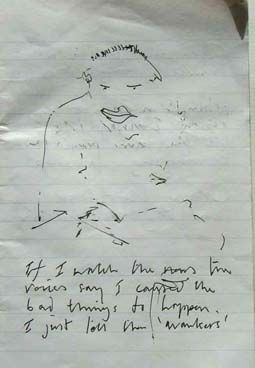 If I watch the news the
voices say I caused the
bad things to happen.
I just tell them 'wankers'